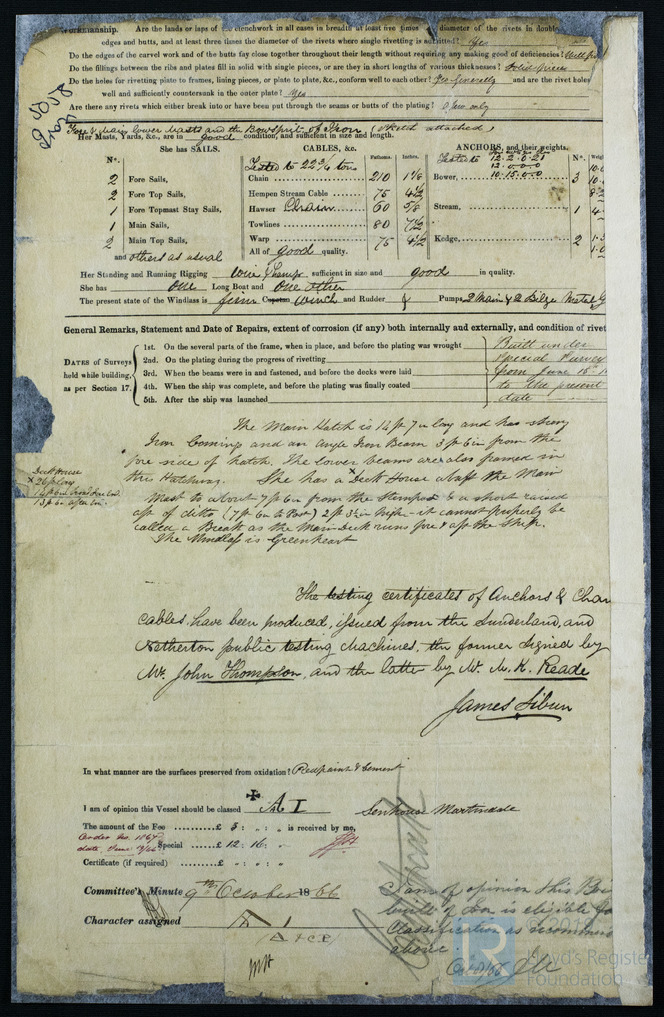 Workmanship. Are the lands or laps of the clenchwork in all cases in breadth at least five times diameter of the rivets in double
edges and butts, and at least three times the diameter of the rivets where single rivetting is admitted? Yes
Do the edges of the carvel work and of the butts fay close together throughout their length without requiring any making good of deficiencies? Well
Do the fillings between the ribs and plates fill in solid with single pieces, or are they in short lengths of various thicknesses? Solid pieces
Do the holes for rivetting plate to frames, lining pieces, or plate to plate, &c., conform well to each other? Yes Generally and are the rivet holes
well and sufficiently countersunk in the outer plate? Yes
Are there any rivets which either break into or have been put through the seams or butts of the plating? A few only
Fore & Main lower masts and the Bowsprit of Iron (Sketch attached)
Her Masts, Yards, &c., are in good condition, and sufficient in size and length.
She has SAILS. CABLES, &c. Fathoms. Inches. ANCHORS, and their weights.
N°. Tested to 22¾ tons N°.
2 Fore Sails, Chain 210 1⅛ Bower, 3
2 Fore Top Sails, Hempen Stream Cable 75
1 Fore Topmast Stay Sails, Hawser Chain 60 5/8 Stream, 1
1 Main Sails, Towlines 80 7½
2 Main Top Sails, Warp 75 4½ Kedge, 2
and others as usual All of good quality.
Her Standing and Running Rigging wire & hemp sufficient in size and good in quality.
She has one Long Boat and one other
The present state of the Windlass is firm Capstan Winch and Rudder Pumps 2 Main & 2 Bilge Metal
General Remarks, Statement and Date of Repairs, extent of corrosion (if any) both internally and externally, and condition of rivet
DATES of Surveys held while building, as per Section 17.
1st. On the several parts of the frame, when in place, and before the plating was wrought Built under
2nd. On the plating during the progress of rivetting Special Survey
3rd. When the beams were in and fastened, and before the decks were laid from June 15th
4th. When the ship was complete, and before the plating was finally coated to the present
5th. After the ship was launched date
The Main Hatch is 14 ft 7 in long and has strong
Iron Comings and an Angle Iron Beam 3 ft 6 in from the
fore side of hatch. The lower beams are also framed in
this Hatching. She has a x Deck House abaft the Main
Deck House
x 26 ft long
13 ft 6 in after End
Mast to about 7 ft 6 in from the Sternpost & a short raised
aft of ditto (7 ft 6 in to Post) 2 ft 3½ in high - it cannot properly be
called a Break as the Main Deck runs fore & aft the Ship.
The Windlass is Greenheart
The testing certificates of Anchors & Chain
cables have been produced, issued from the Sunderland, and
Netherton public testing Machines, the former signed by
Mr. John Thompson, and the latter by Mr. M. K. Reade
James Sibun
In what manner are the surfaces preserved from oxidation? Red paint & Cement
I am of opinion this Vessel should be classed A 1
Senhouse Martindale
The amount of the Fee £ 5 : „ : „ is received by me,
Special £ 12 : 16 : „
Certificate (if required) £ „ : „ : „
Committee's Minute 9th October 1866
Character assigned A 1
I am of opinion this
built of Iron is eligible
Classification as recommen
above
LR
Lloyd's Register
Foundation